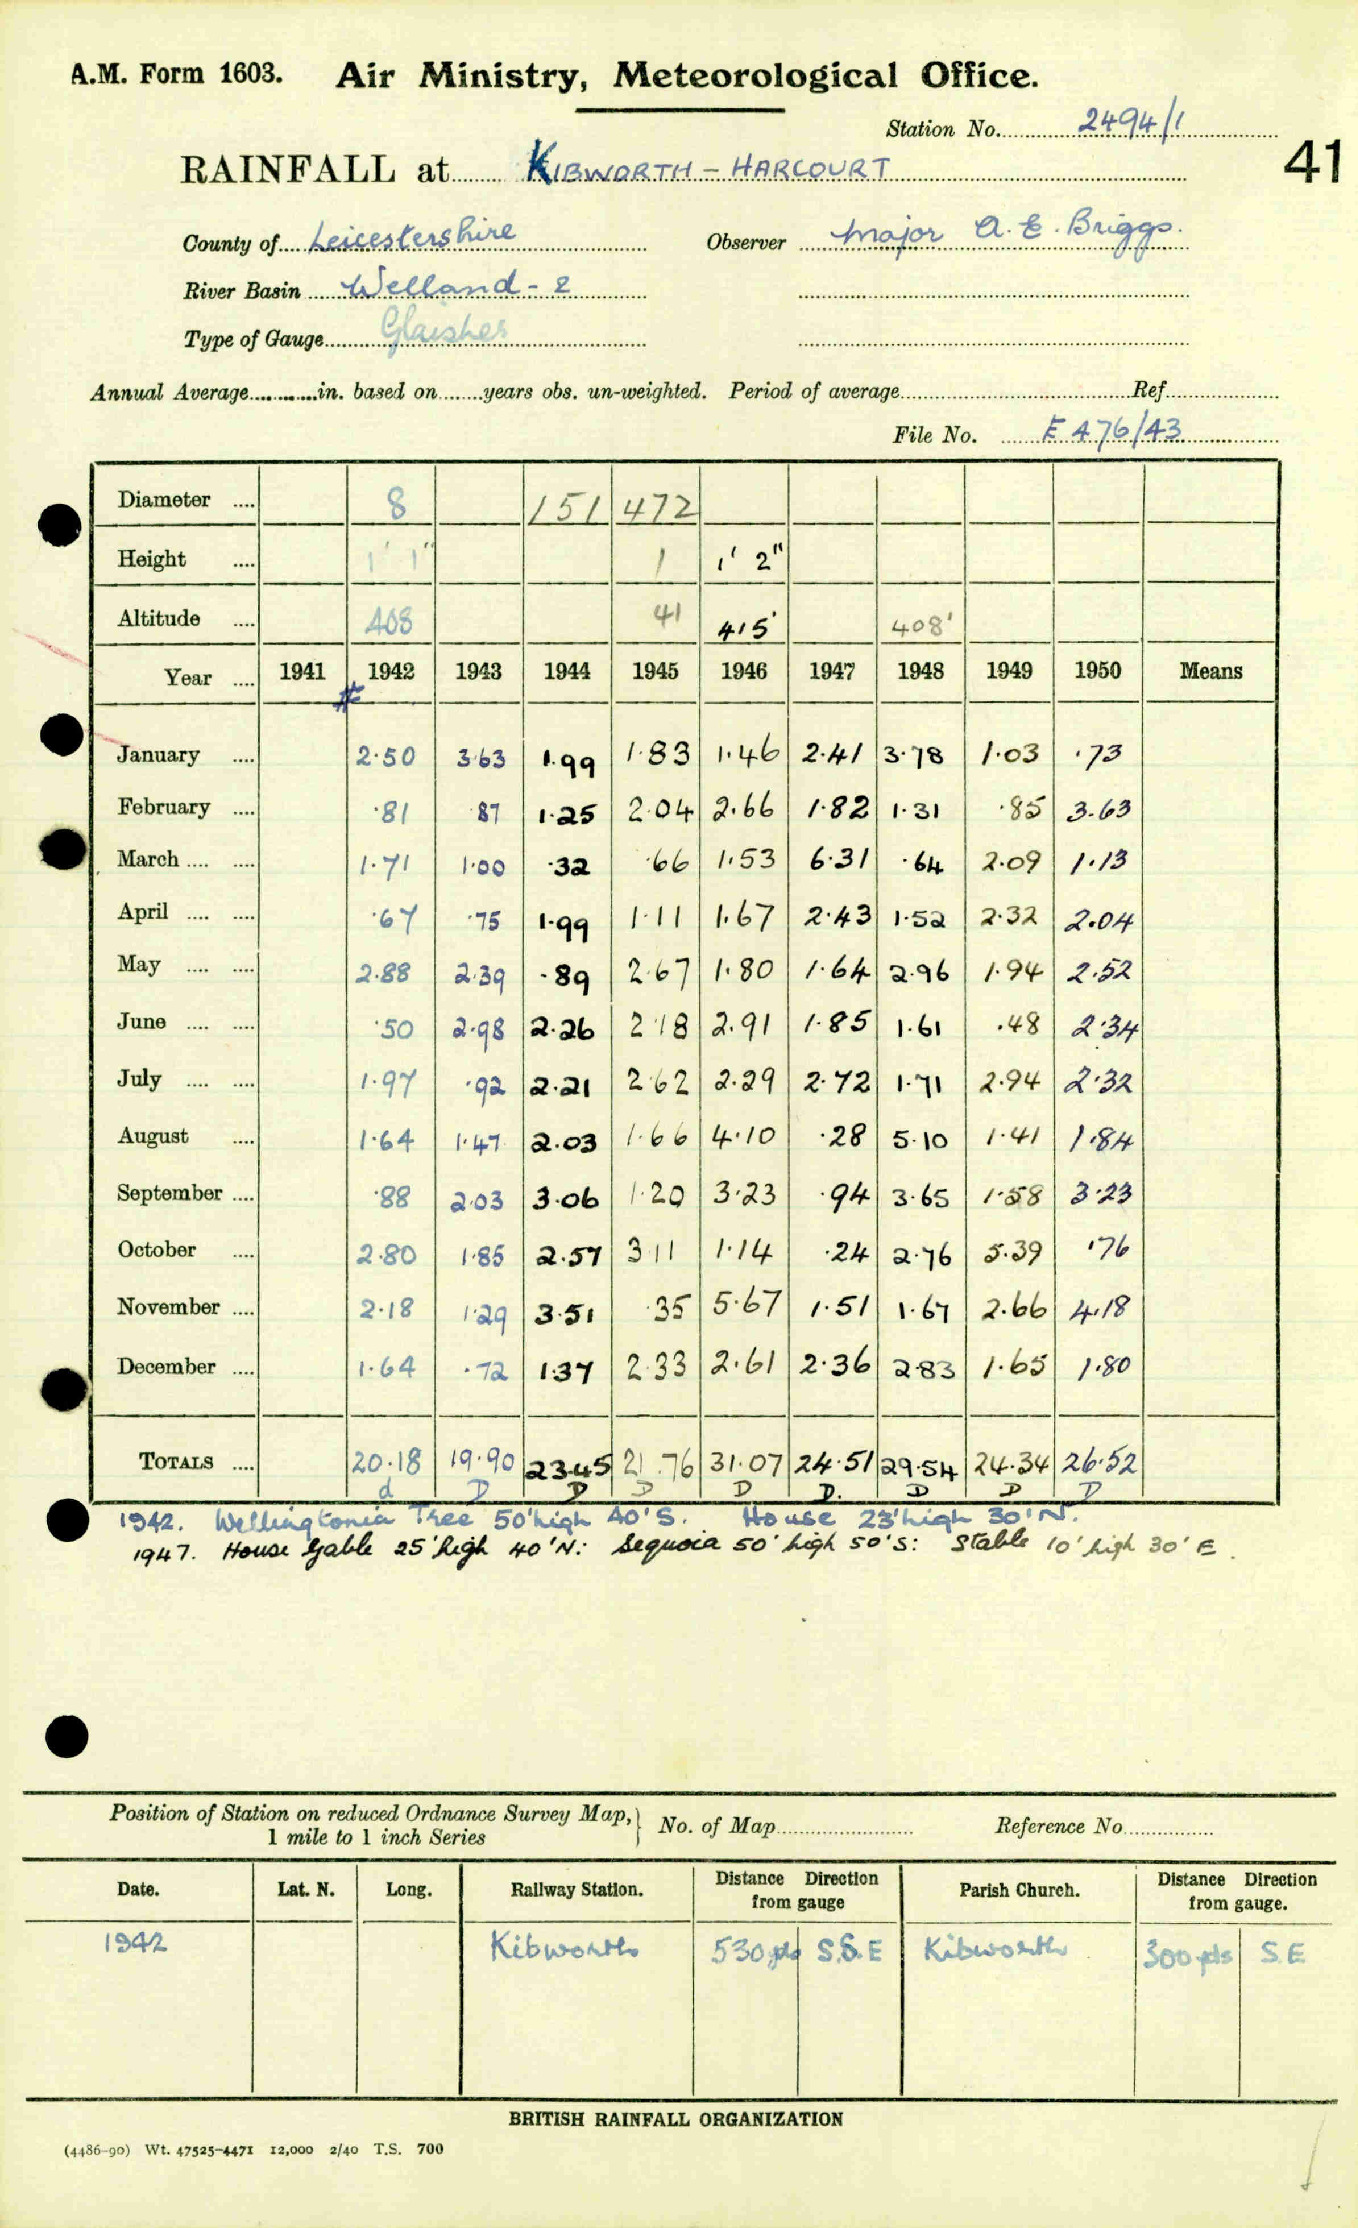 A.M. Form 1603. Air Ministry, Meteorological Office.
Station No. 2494/1
RAINFALL at KIBWORTH - HARCOURT 41
County of Leicestershire Observer Major A. E. Briggs.
River Basin Welland - 2
Type of Gauge Glaisher
Annual Average in. based on years obs. un-weighted. Period of average Ref.
File No. E 476/43
Diameter 8 151 472
Height 1' 1" 1 1' 2"
Altitude 408 41 415' 408'
Year 1941 1942 1943 1944 1945 1946 1947 1948 1949 1950 Means
January 2.50 3.63 1.99 1.83 1.46 2.41 3.78 1.03 .73
February .81 .87 1.25 2.04 2.66 1.82 1.31 .85 3.63
March 1.71 1.00 .32 .66 1.53 6.31 .64 2.09 1.13
April .67 .75 1.99 1.11 1.67 2.43 1.52 2.32 2.04
May 2.88 2.39 .89 2.67 1.80 1.64 2.96 1.94 2.52
June .50 2.98 2.26 2.18 2.91 1.85 1.61 .48 2.34
July 1.97 .92 2.21 2.62 2.29 2.72 1.71 2.94 2.32
August 1.64 1.47 2.03 1.66 4.10 .28 5.10 1.41 1.84
September .88 2.03 3.06 1.20 3.23 .94 3.65 1.58 3.23
October 2.80 1.85 2.57 3.11 1.14 .24 2.76 5.39 .76
November 2.18 1.29 3.51 .35 5.67 1.51 1.67 2.66 4.18
December 1.64 .72 1.37 2.33 2.61 2.36 2.83 1.65 1.80
TOTALS 20.18 19.90 23.45 21.76 31.07 24.51 29.54 24.34 26.52
d D D D D D. D D D
1942. Wellingtonia Tree 50' high 40' S. House 23' high 30' N.
1947. House Gable 25' high 40' N: Sequoia 50' high 50' S: Stable 10' high 30' E.
Position of Station on reduced Ordnance Survey Map, No. of Map Reference No
1 mile to 1 inch Series
Date. Lat. N. Long. Railway Station. Distance Direction from gauge Parish Church. Distance Direction from gauge.
1942 Kibworth 530 yds S.S.E Kibworth 300 yds S.E
BRITISH RAINFALL ORGANIZATION
(4486-90) Wt. 47525-4471 12,000 2/40 T.S. 700